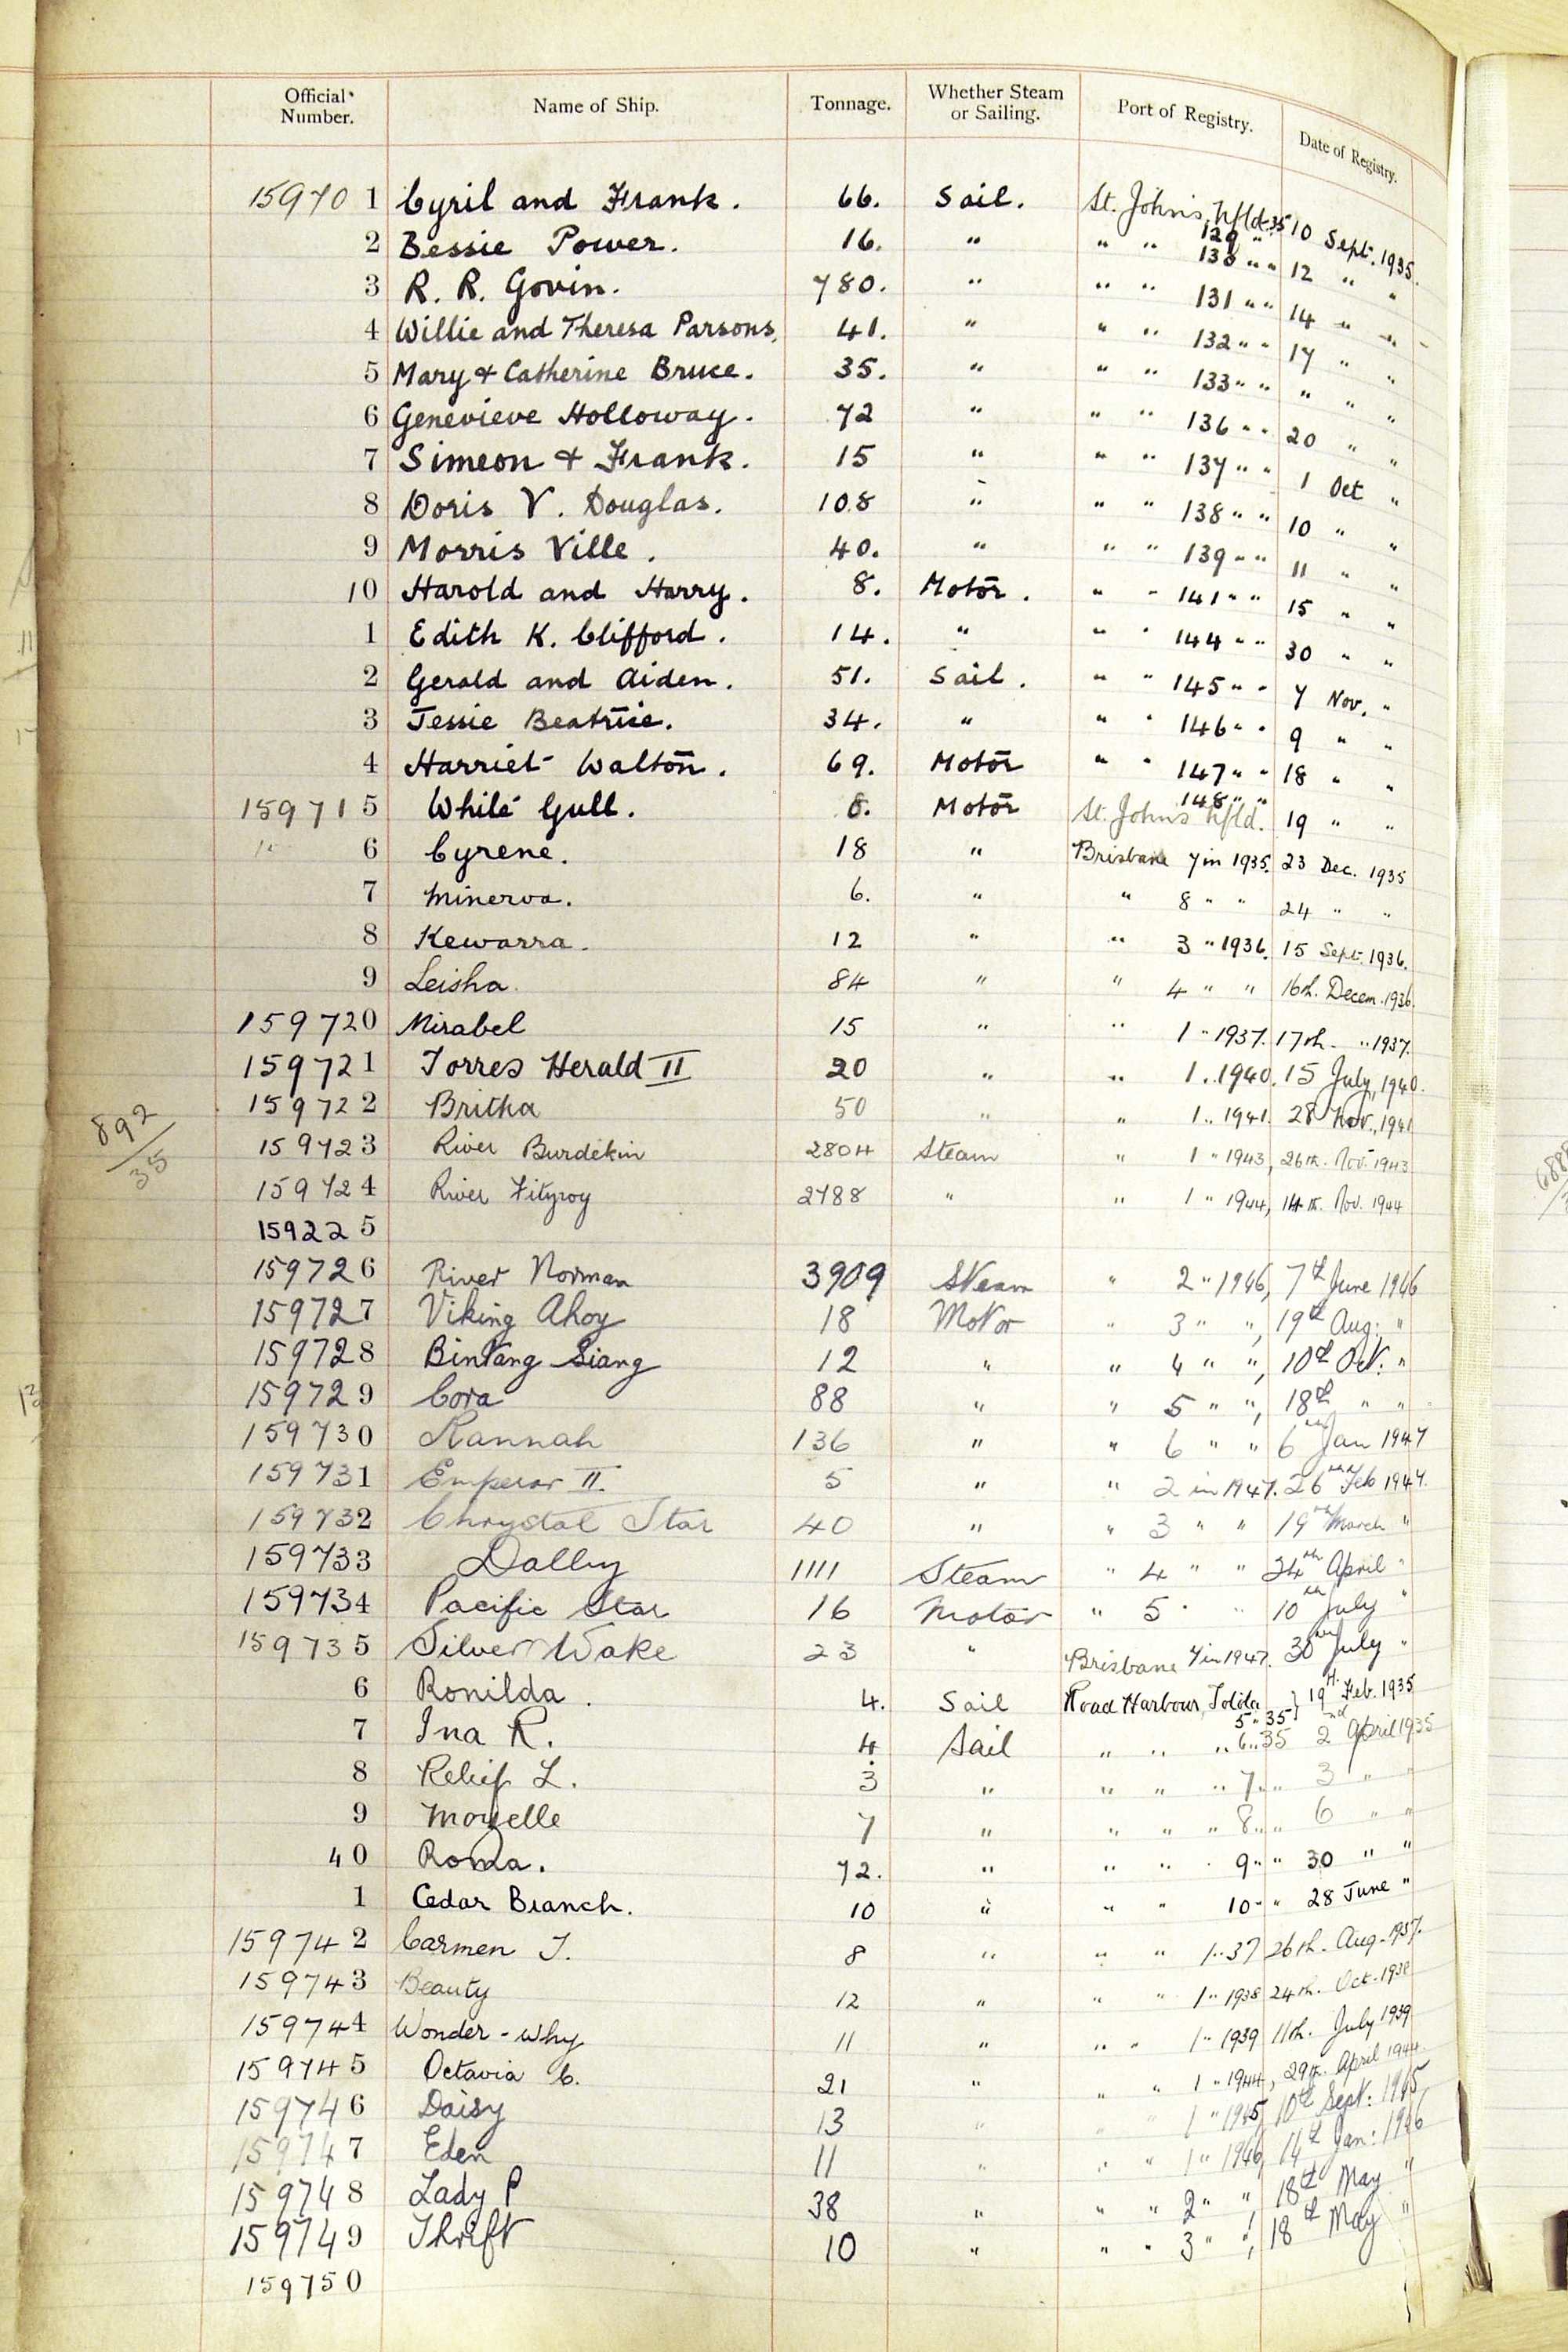 Official Number. Name of Ship. Tonnage. Whether Steam or Sailing. Port of Registry. Date of Registry.
15970 1 Cyril and Frank. 66. Sail. St. John's, Nfld. 129 " 35 10 Sept. 1935.
2 Bessie Power. 16. " " " 130 " " 12 " "
3 R. R. Govin. 780. " " " 131 " " 14 " "
4 Willie and Theresa Parsons. 41. " " " 132 " " 17 " "
5 Mary & Catherine Bruce. 35. " " " 133 " " " " "
6 Genevieve Holloway. 72 " " " 136 " " 20 " "
7 Simeon & Frank. 15 " " " 137 " " 1 Oct "
8 Doris V. Douglas. 108 " " " 138 " " 10 " "
9 Morris Ville. 40. " " " 139 " " 11 " "
10 Harold and Harry. 8. Motor. " " 141 " " 15 " "
1 Edith K. Clifford. 14. " " " 144 " " 30 " "
2 Gerald and Aiden. 51. Sail. " " 145 " " 7 Nov. "
3 Jessie Beatrice. 34. " " " 146 " " 9 " "
4 Harriet Walton. 69. Motor " " 147 " " 18 " "
15971 5 White Gull. Motor St. John's Nfld. 148 " " 19 " "
6 Cyrene. 18 " Brisbane 7 in 1935. 23 Dec. 1935
7 Minerva. 6. " " 8 " " 24 " "
8 Kewarra. 12 " " 3 " 1936. 15 Sept. 1936.
9 Leisha. 84 " " 4 " " 16th. Decem. 1936.
159720 Mirabel 15 " " 1 " 1937. 17th. " 1937.
159721 Torres Herald II 20 " " 1 " 1940. 15 July, 1940.
159722 Britha 50 " " 1 " 1941. 28 Nov., 1941
892/35
159723 River Burdekin 2804 Steam " 1 " 1943, 26th. Nov. 1943
159724 River Fitzroy 2788 " " 1 " 1944, 14th. Nov. 1944
159225
159726 River Norman 3909 Steam " 2 " 1946, 7th June 1946
159727 Viking Ahoy 18 Motor " 3 " ", 19th Aug: "
159728 Bintang Siang 12 " " 4 " ", 10th Oct: "
159729 Cora 88 " " 5 " ", 18th " "
159730 Rannah 136 " " 6 " " 6th Jan 1947
159731 Emperor II. 5 " " 2 in 1947. 26th Feb 1947.
159732 Chrystal Star 40 " " 3 " " 19th March "
159733 Dalby 1111 Steam " 4 " " 24th April "
159734 Pacific Star 16 Motor " 5 " " 10th July "
159735 Silver Wake 23 " Brisbane in 1947. 30th July "
6 Ronilda. 4. Sail Road Harbour, Tolda 5 " 35 } 19th. Feb. 1935
7 Ina R. 4. Sail " " " 6 " 35 2nd April 1935
8 Relief L. 3 " " " " 7 " " 3 " "
9 Mozelle 7 " " " " 8 " " 6 " "
40 Roma. 72. " " " " 9 " " 30 " "
1 Cedar Branch. 10 " " " 10 " " 28 June "
159742 Carmen T. 8 " " " 1 " 37 26th. Aug. 1937.
159743 Beauty 12 " " " 1 " 1938 24th. Oct. 1938
159744 Wonder-why 11 " " " 1 " 1939 11th. July 1939
159745 Octavia C. 21 " " " 1 " 1944, 29th. April 1944.
159746 Daisy 13 " " " 1 " 1945, 10th Sept: 1945
159747 Eden 11 " " " 1 " 1946, 14th Jan: 1946
159748 Lady P 38 " " " 2 " ", 18th May "
159749 Thrift 10 " " " 3 " ", 18th May "
159750